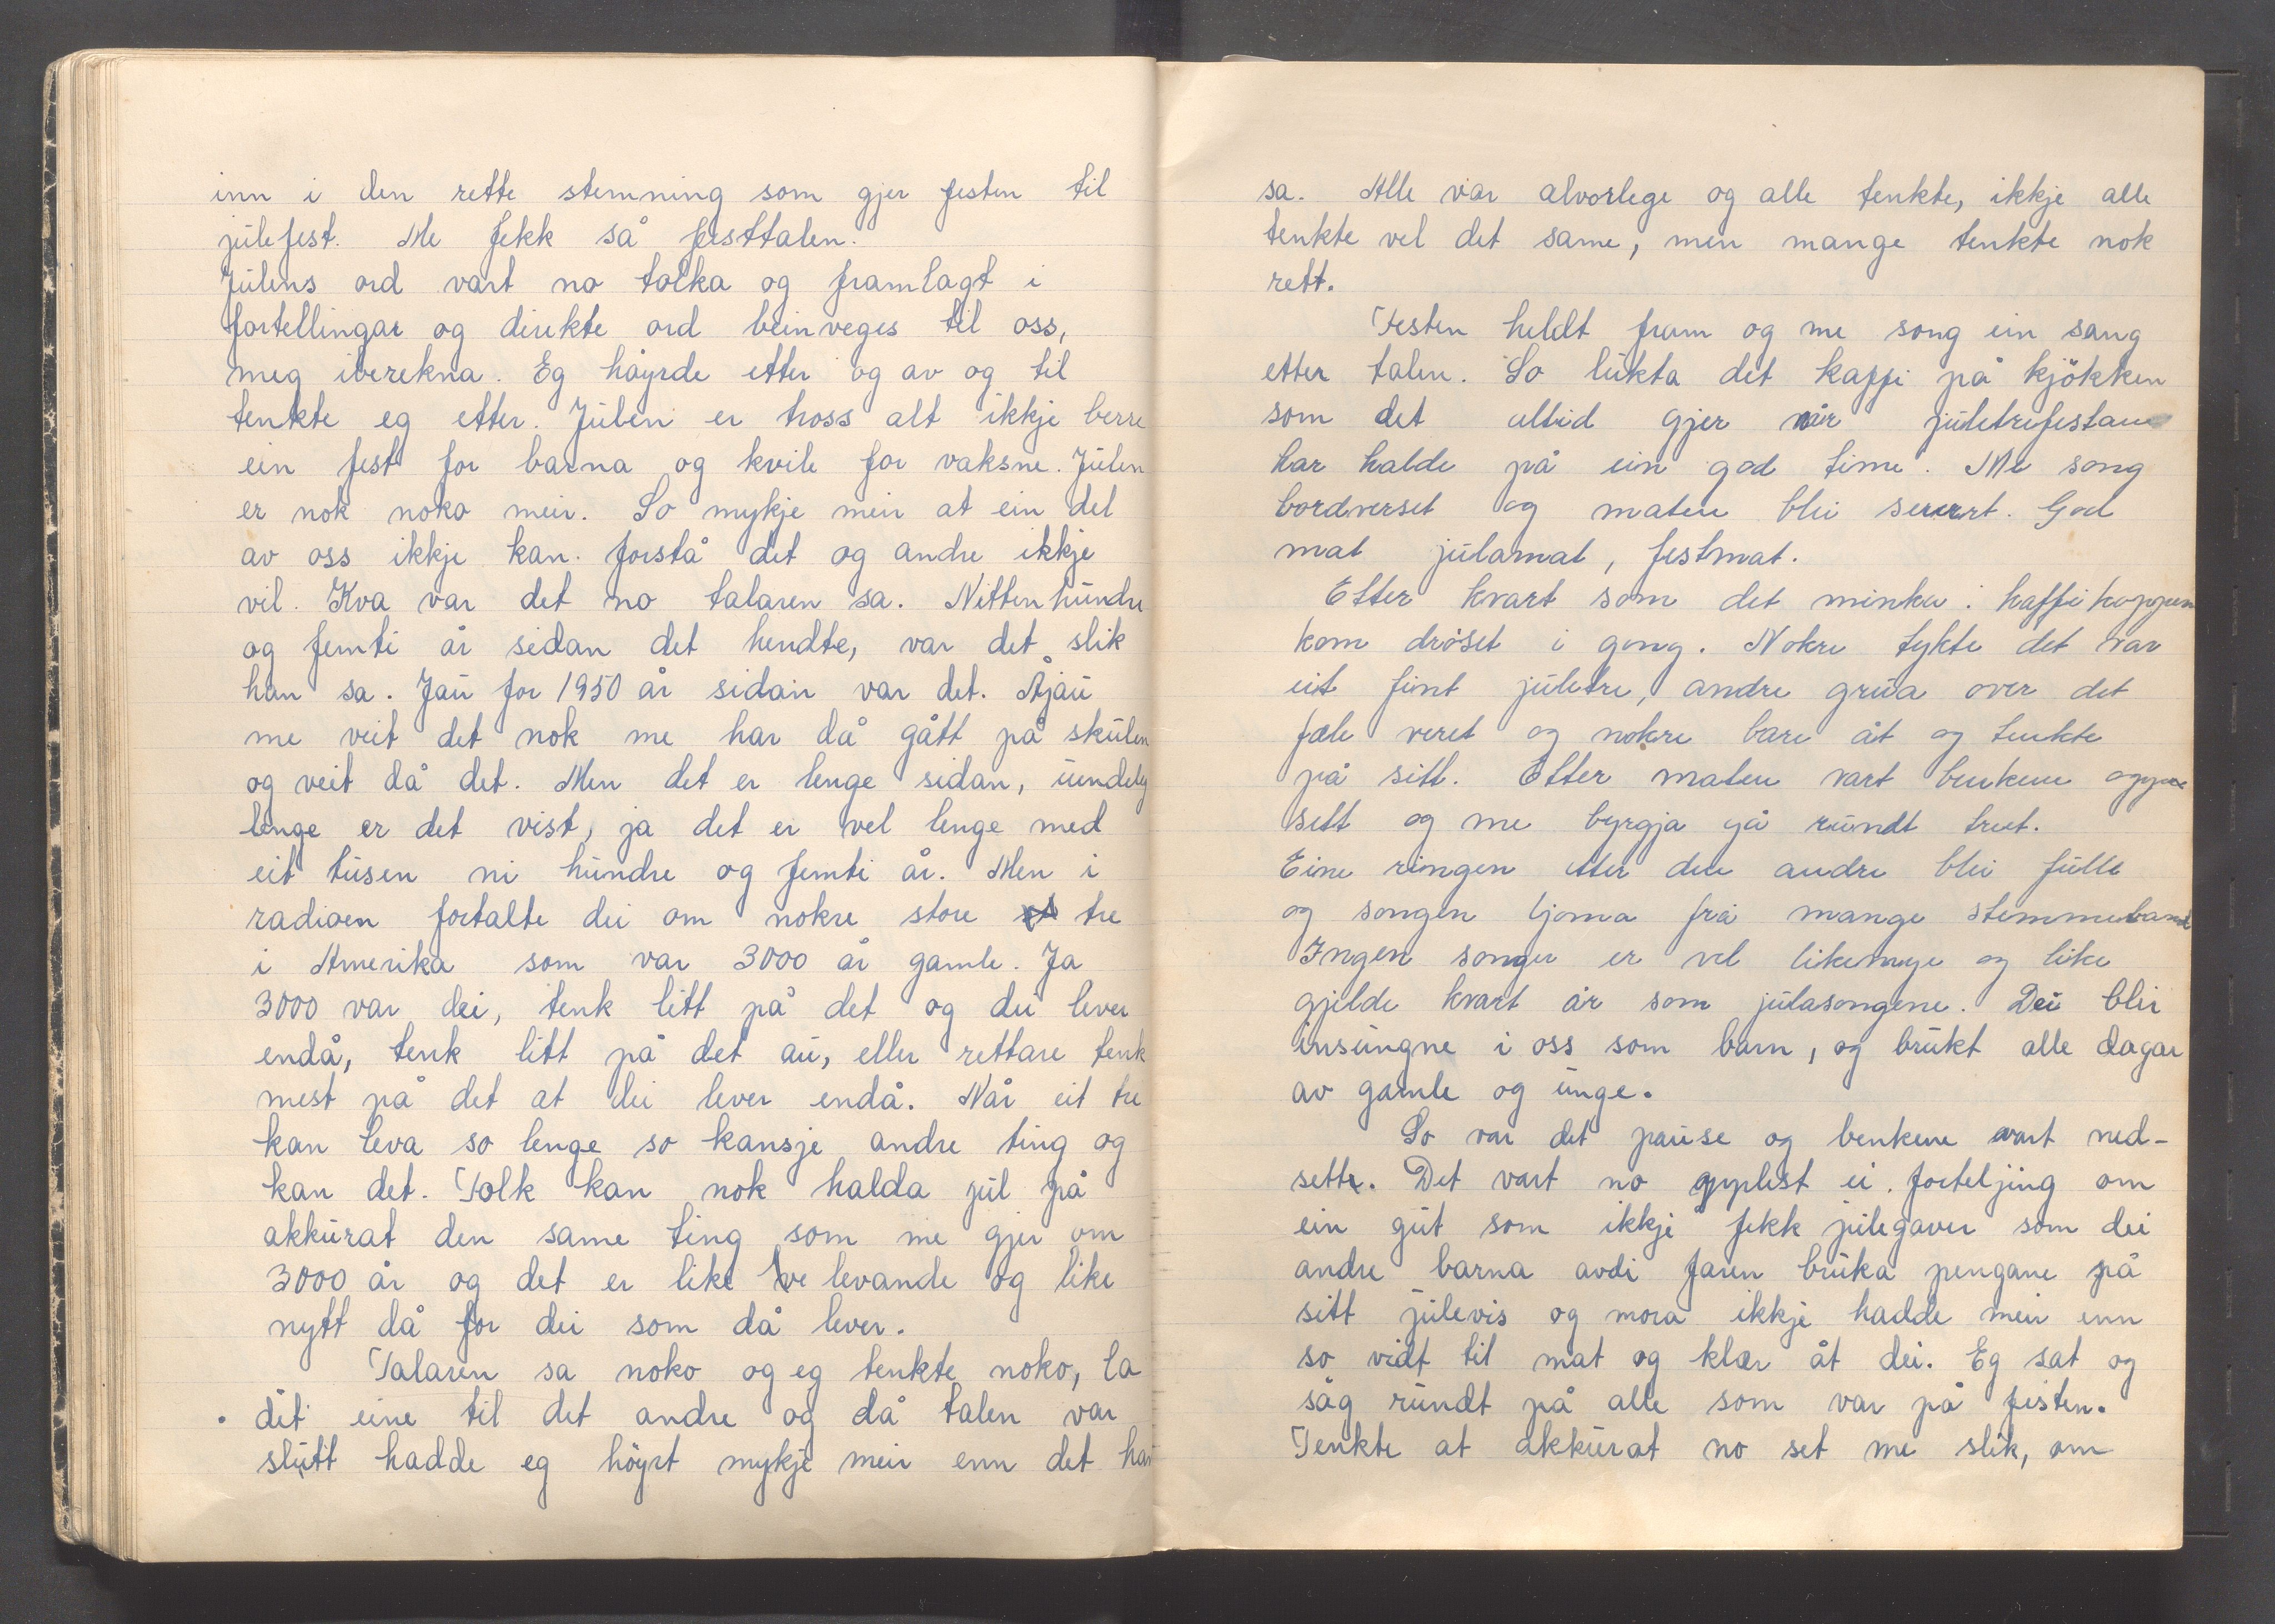 inn i den rette stemning som gjer festen til
julefest. Me fekk så festtalen.
Julens ord vart no tolka og framlagt i
fortellingar og direkte ord beinveges til oss,
meg iberekna. Eg høyrde etter og av og til
tenkte eg etter. Julen er tross alt ikkje berre
ein fest for barna og kvile for vaksne. Julen
er nok noko meir. So mykje meir at ein del
av oss ikkje kan forstå det og andre ikkje
vil. Kva var det no talaren sa. Nittenhundre
og femti år sidan det hendte, var det slik
han sa. Jau for 1950 år sidan var det. Åjau
me veit det nok me har då gått på skulen
og veit då det. Men det er lenge sidan, uendelig
lenge er det vist, ja det er vel lenge med
eit tusen ni hundre og femti år. Men i
radioen fortalte dei om nokre store tre
i Amerika som var 3000 år gamle. Ja
3000 var dei, tenk litt på det og dei lever
endå, tenk litt på det au, eller rettare tenk
mest på det at dei lever endå. Når eit tre
kan leva so lenge so kansje andre ting og
kan det. Folk kan nok halda jul på
akkurat den same ting som me gjer om
3000 år og det er like levande og like
nytt då for dei som då lever.
Talaren sa noko og eg tenkte noko, la
det eine til det andre og då talen var
slutt hadde eg höyrt mykje meir enn det han
sa. Alle var alvorlege og alle tenkte, ikkje alle
tenkte vel det same, men mange tenkte nok
rett.
Festen heldt fram og me song ein sang
etter talen. So lukta det kaffi på kjökken
som det alltid gjer når juletrefestane
har halde på ein god time. Me song
bordverset og maten blei servert. God
mat julamat, festmat.
Etter kvart som det minka i kaffikoppen
kom dröset i gong. Nokre tykte det var
eit fint juletre, andre grua over det
fæle veret og nokre bare åt og tenkte
på sitt. Etter maten vart benkene oppe
sett og me byrgja gå rundt treet.
Eine ringen etter den andre blei fulle
og songen ljoma frå mange stemmeband
Ingen songer er vel likemye og like
gjelde kvart år som julasongene. Dei blir
insungne i oss som barn, og brukt alle dagar
av gamle og unge.
So var det pause og benkene vart ned-
sett. Det vart no opplest ei forteljing om
ein gut som ikkje fekk julegaver som dei
andre barna avdi faren bruka pengane på
sitt julevis og mora ikkje hadde meir enn
so vidt til mat og klær åt dei. Eg sat og
såg rundt på alle som var på festen.
Tenkte at akkurat no set me slik, om